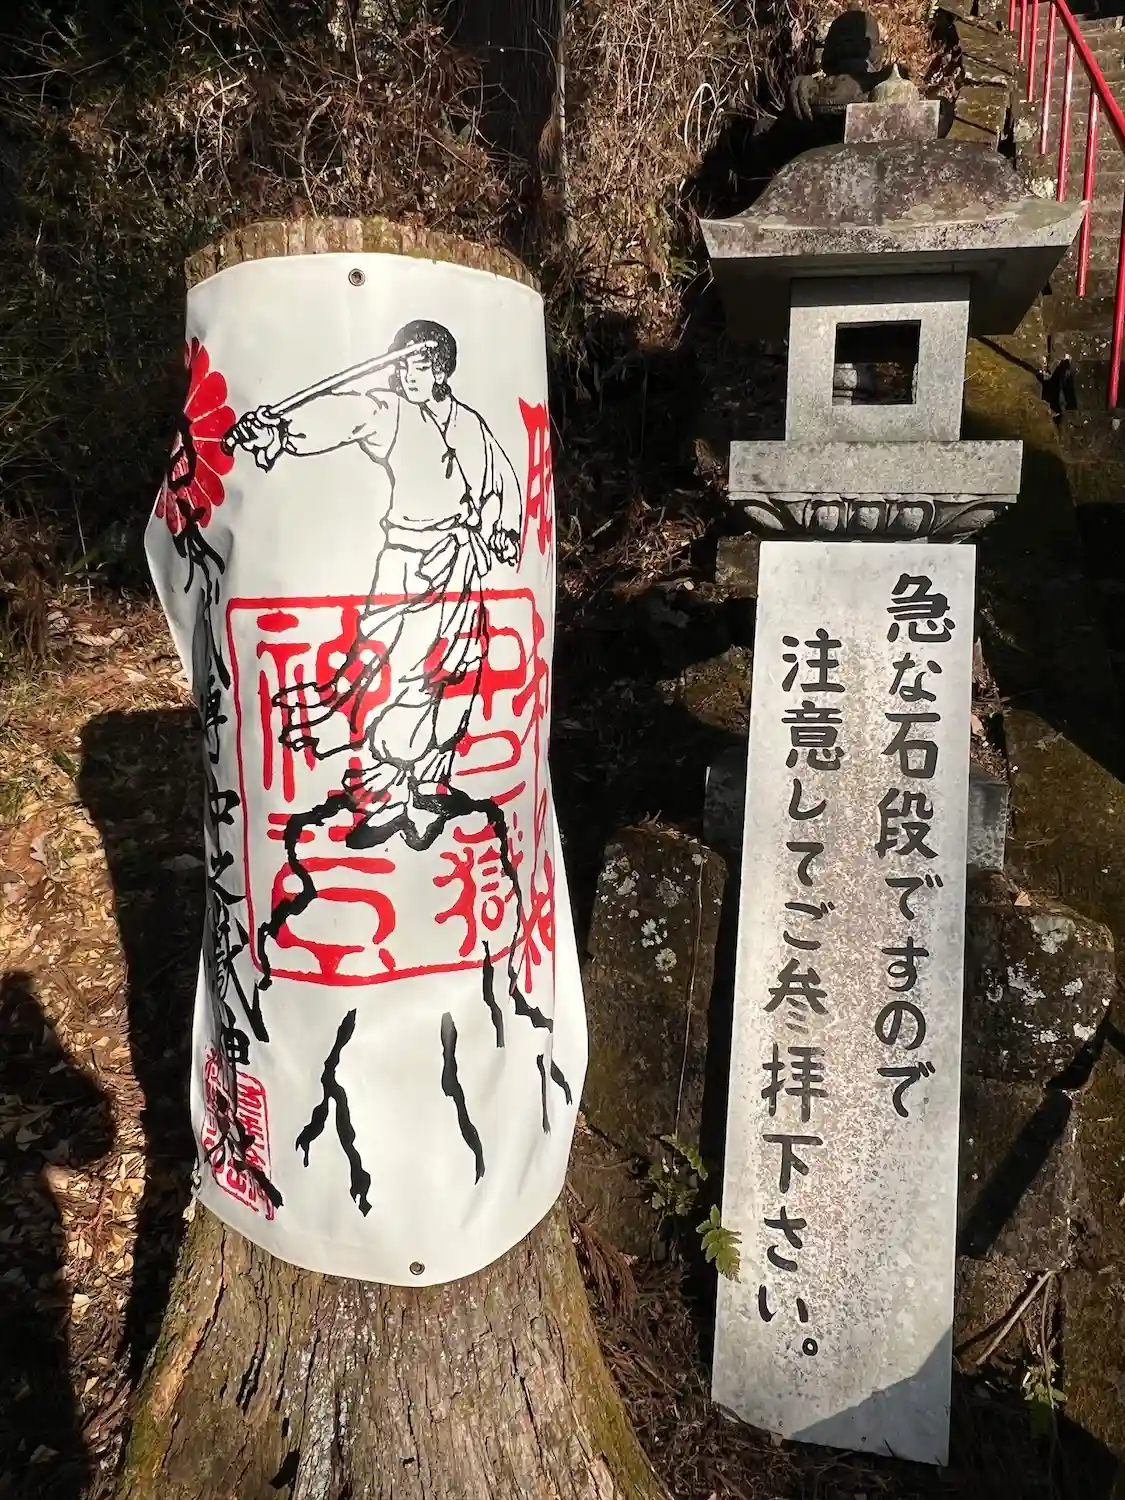 急な石段ですので
注意してご参拝下さい。
中之嶽
日本武尊 中之嶽神社